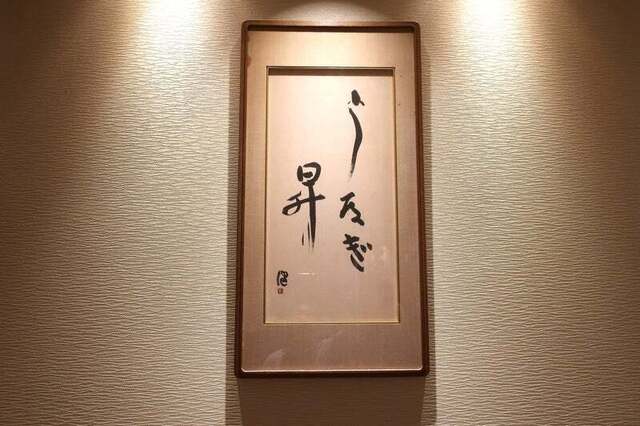 うなぎ
昇